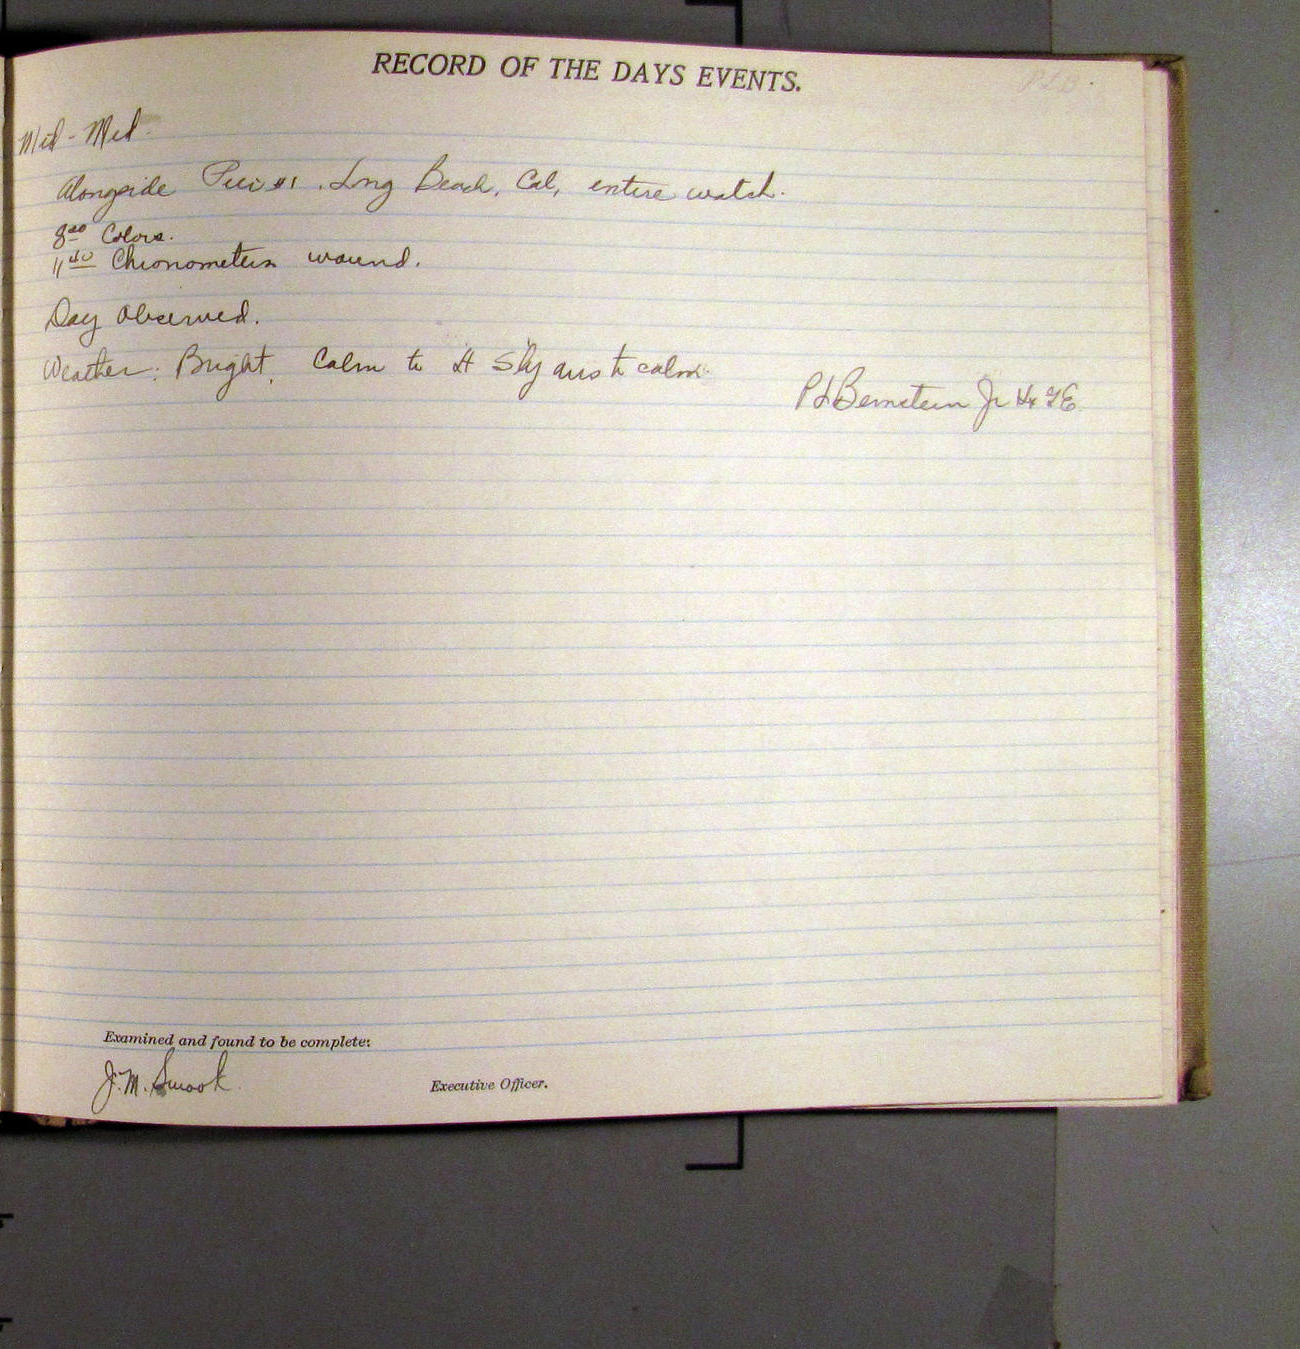 RECORD OF THE DAYS EVENTS.
PLB.
Mid - Mid.
Alongside Pier #1, Long Beach, Cal, entire watch.
8 00 Colors.
11 40 Chronometers wound.
Day Observed.
Weather: Bright, Calm to lt S'ly airs to calm.
P L Bernstein Jr H & GE
Examined and found to be complete:
J. M. Smook
Executive Officer.